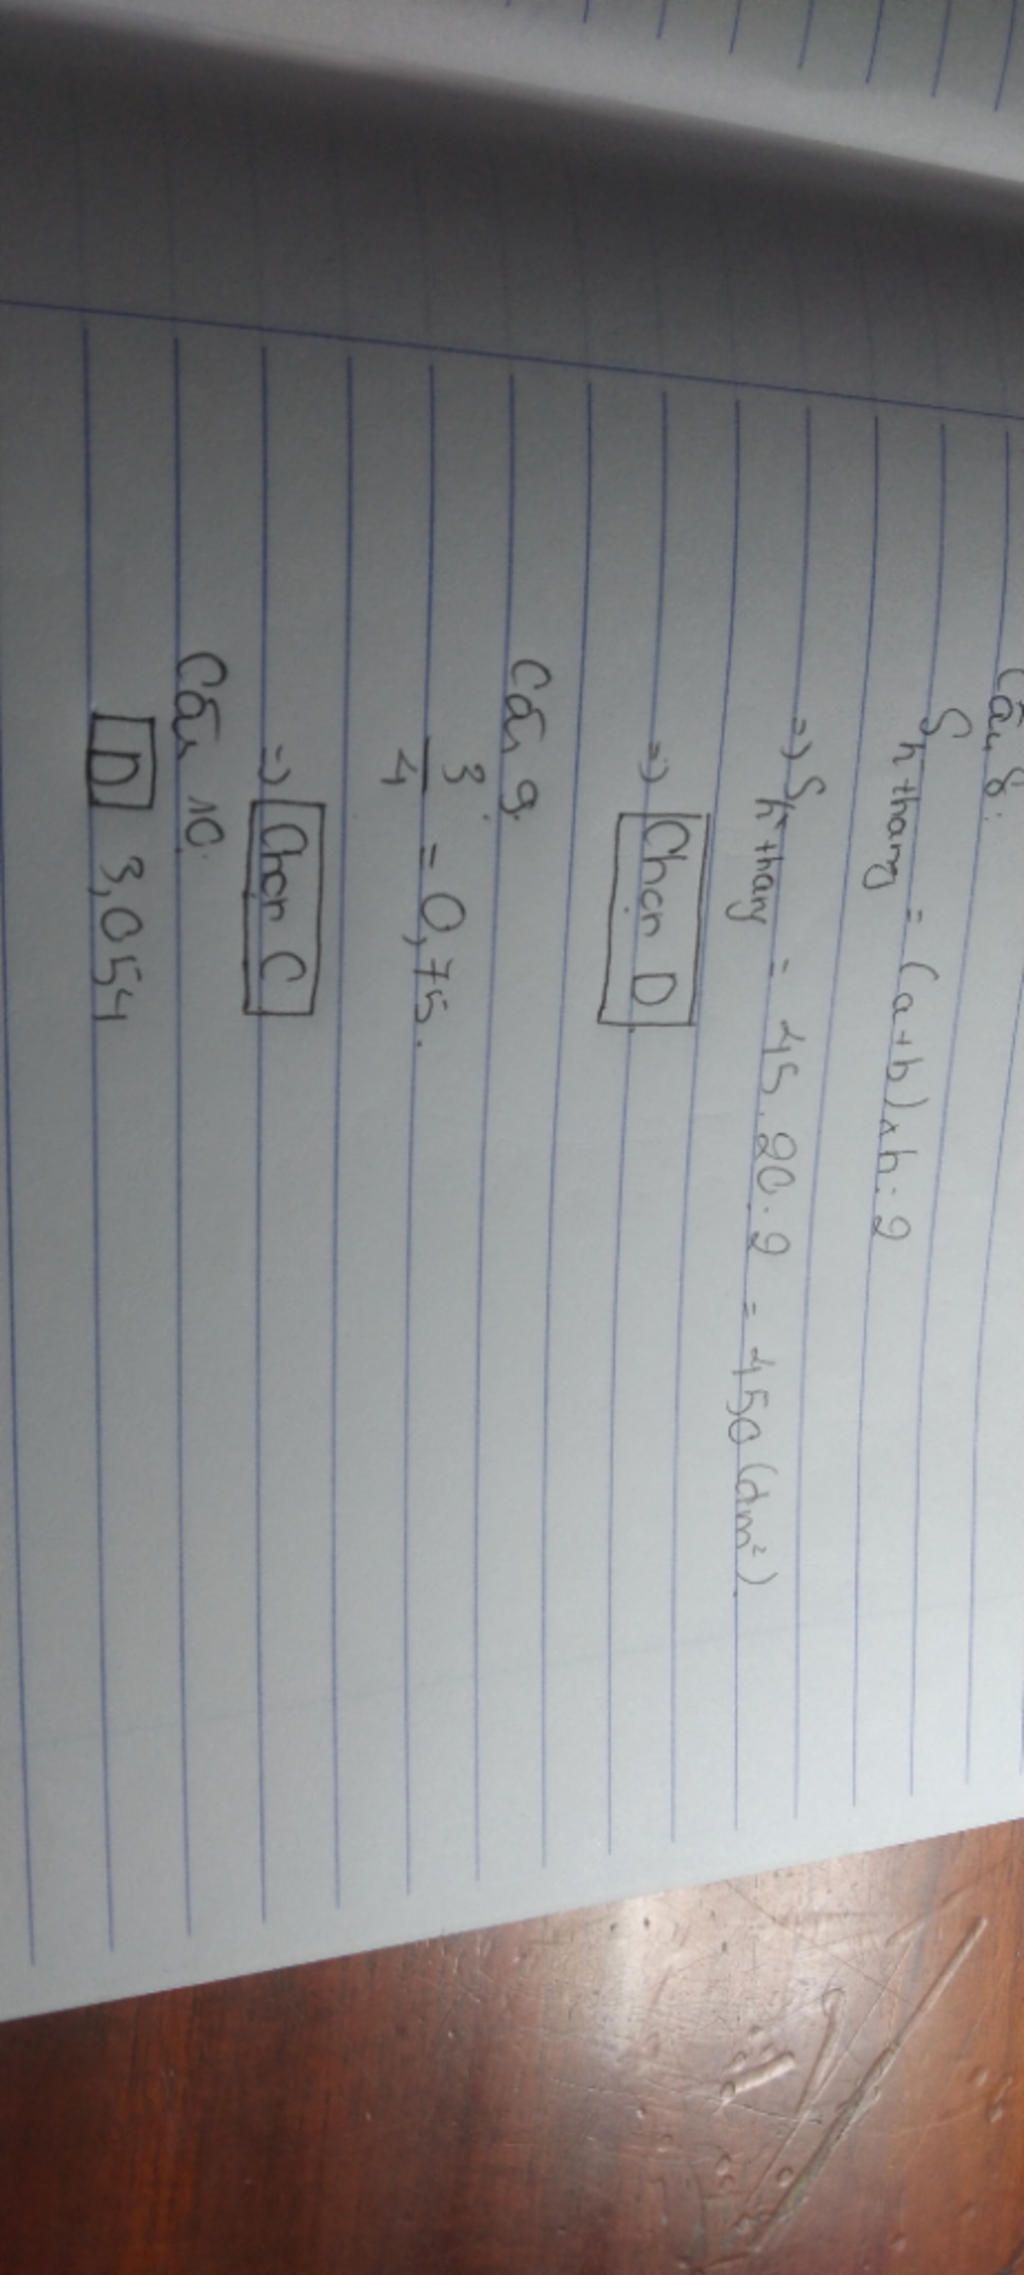 Câu 8:
S h thang = (a+b)xh:2
=> S h thang = 45.20:2 = 450 (dm²).
=> Chọn D
Câu 9:
3/4 = 0,75.
=> Chọn C
Câu 10:
D 3,054